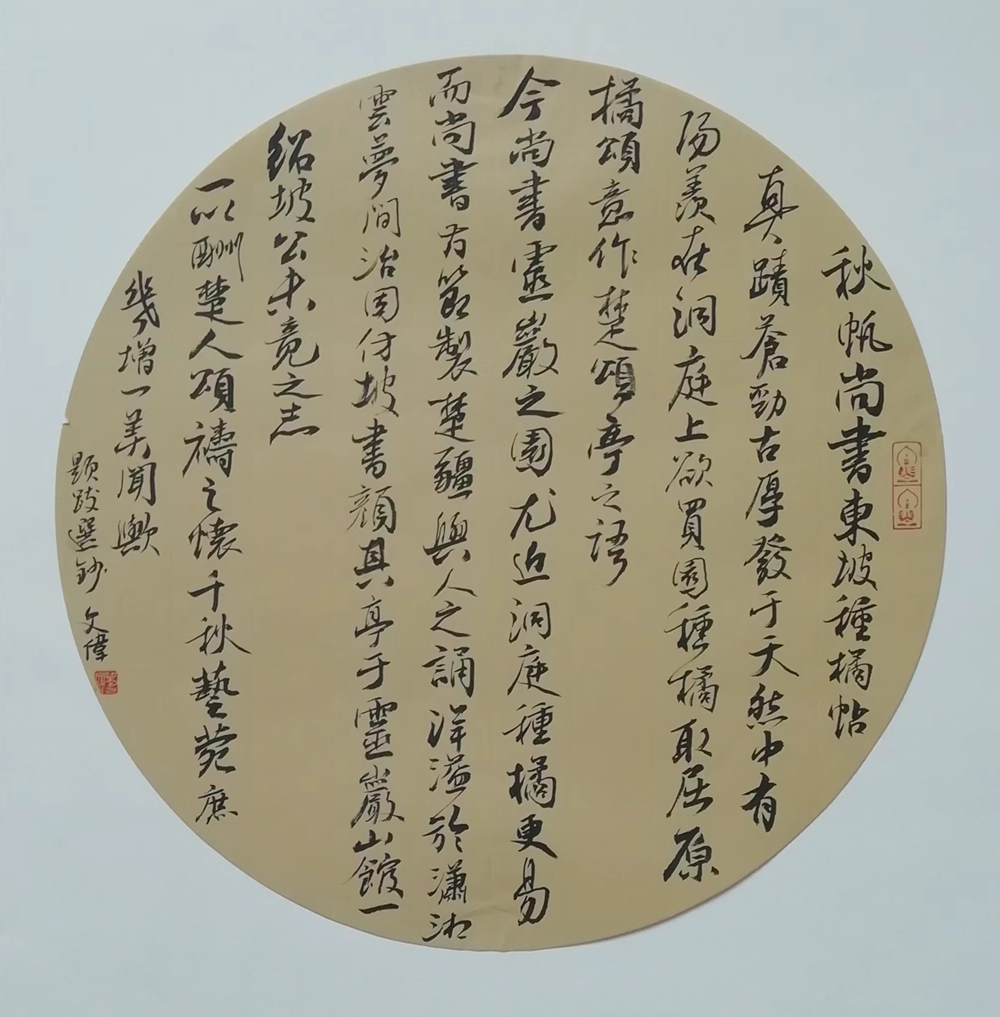 秋帆尚書東坡種橘帖
真蹟蒼勁古厚發于天然中有
陽羨在洞庭上欲買園種橘取屈原
橘頌意作楚頌亭之語
今尚書靈巖之園尤近洞庭種橘更易
而尚書方節製楚疆與人之誦洋溢於瀟湘
雲夢間治園仿坡書顏其亭于靈巖山館一
紹坡公未竟之志
一以酬楚人頌禱之懷千秋藝苑庶
幾增一美聞歟
題跋選鈔 文偉